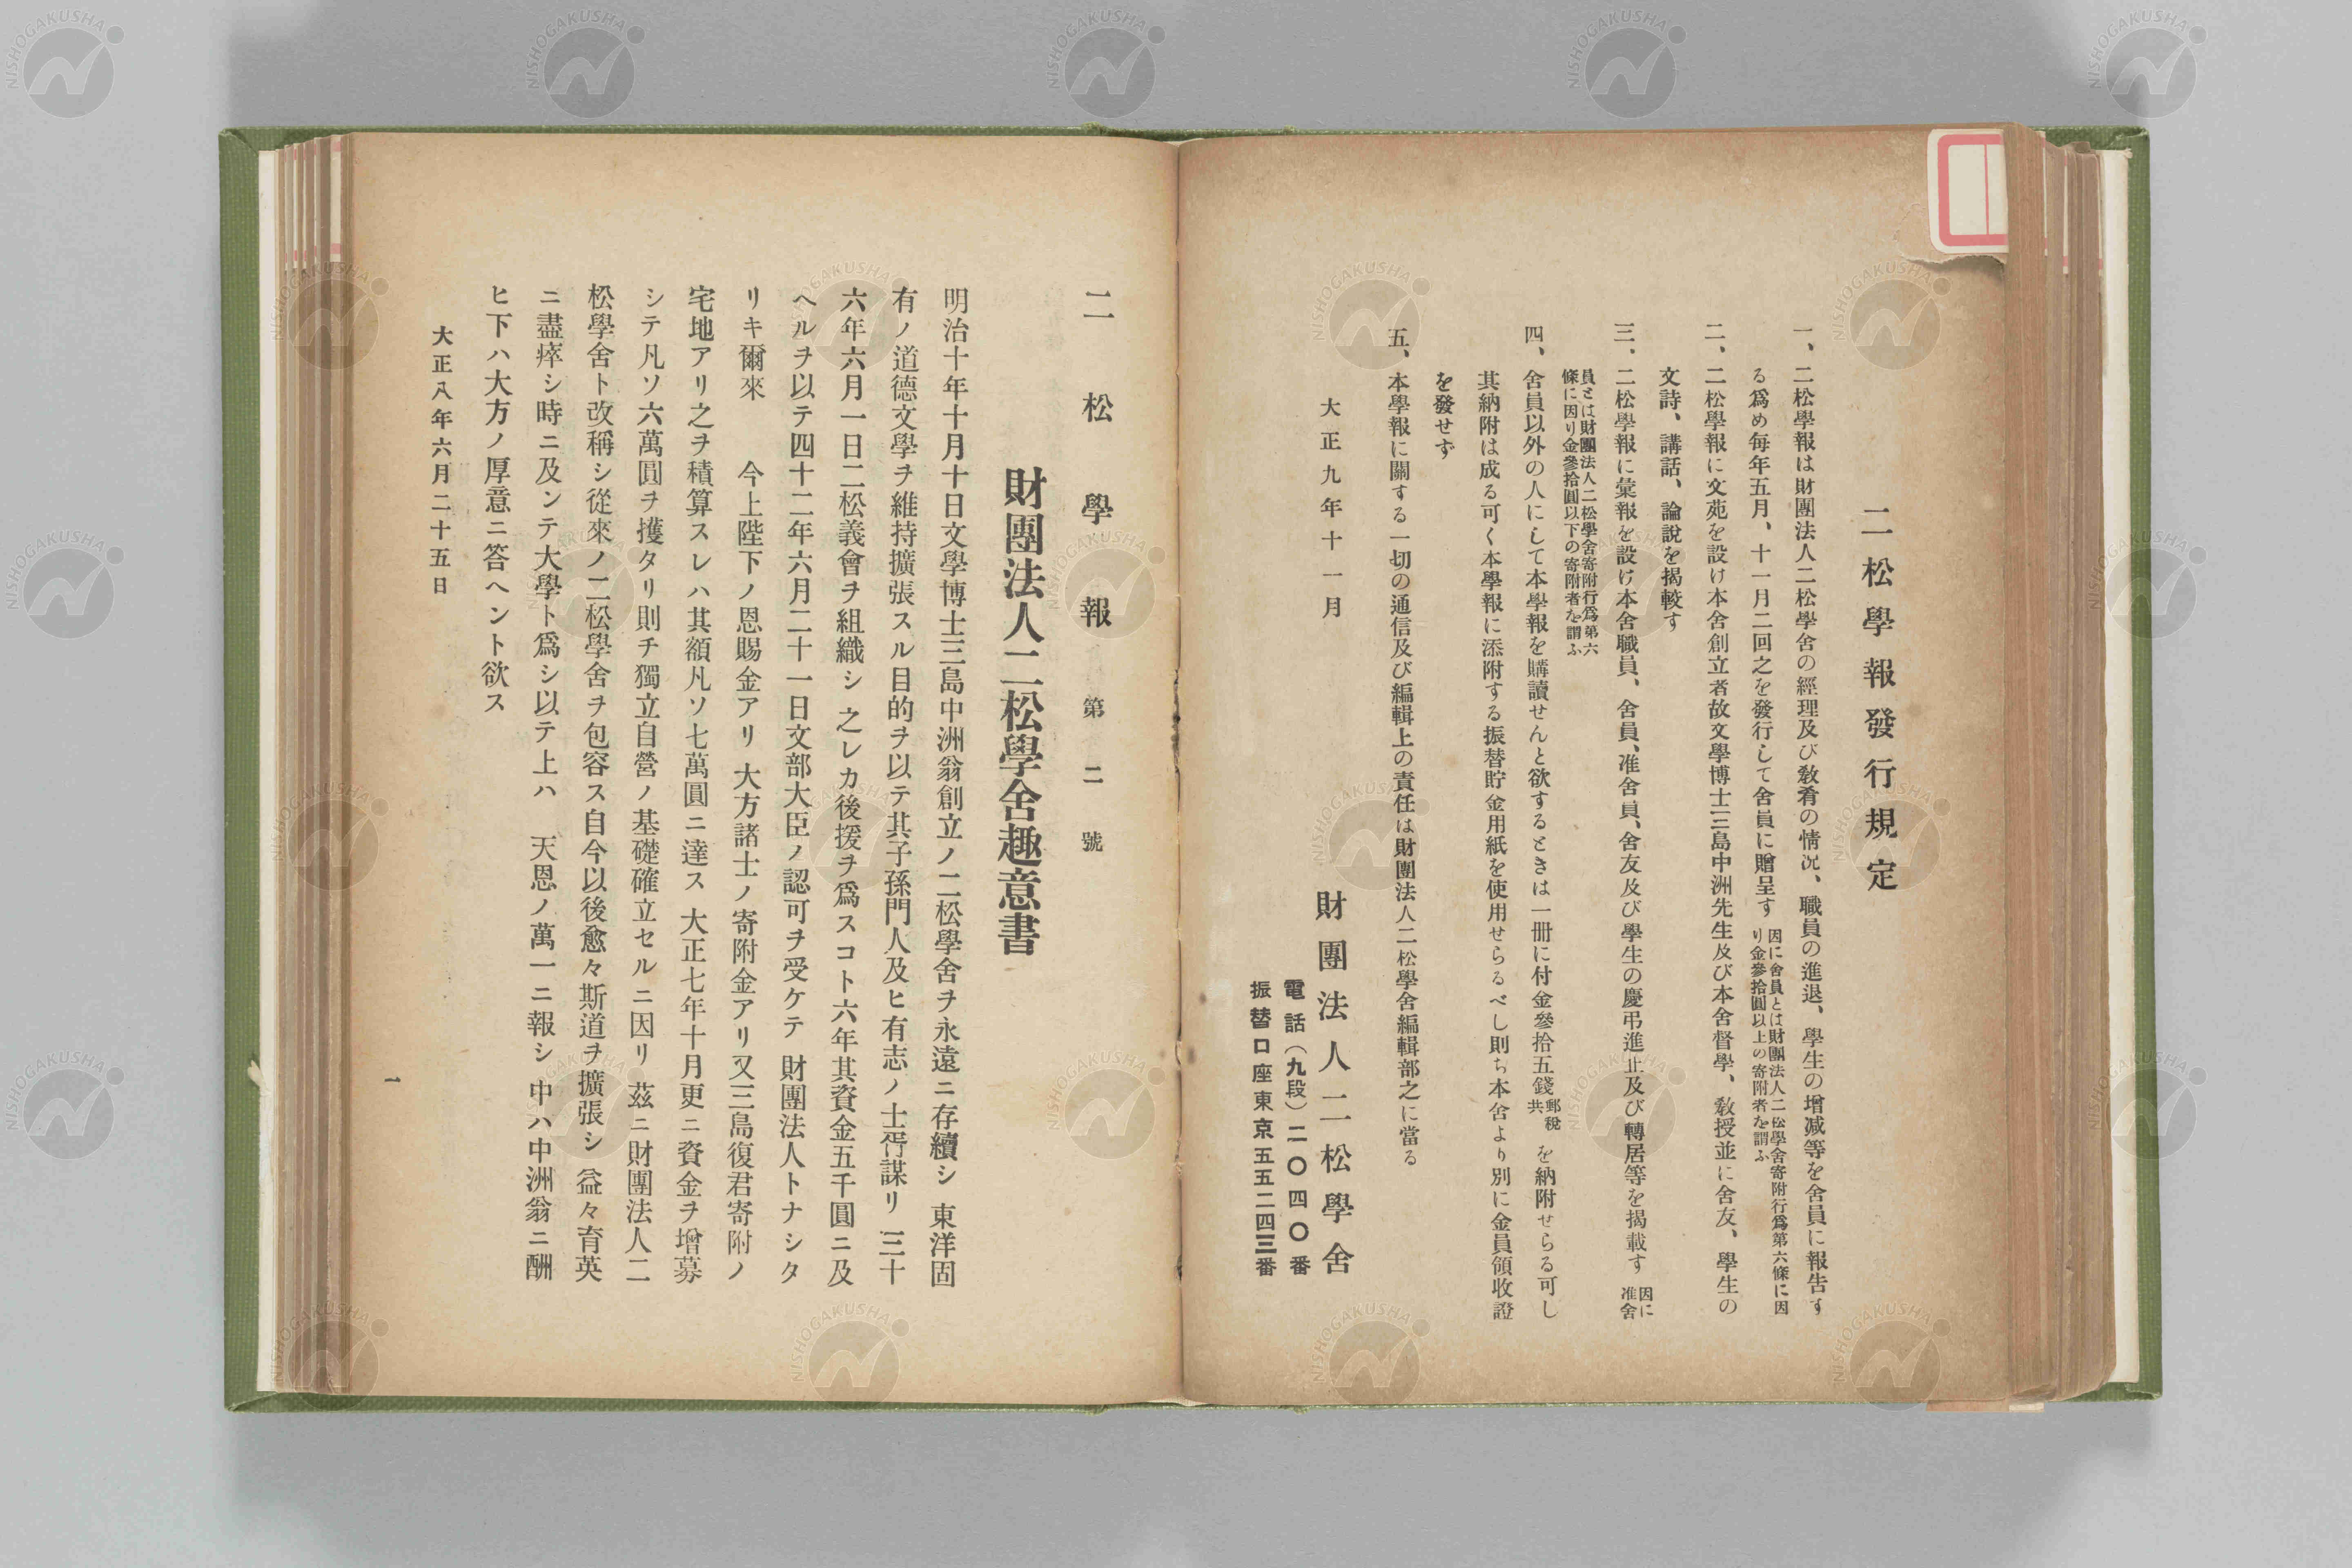 二松學報發行規定
一、二松學報は財團法人二松學舍の經理及び敎肴の情況、職員の進退、學生の增减等を舍員に報吿す
る爲め每年五月、十一月二回之を發行して舍員に贈呈す 因に舍員とは財團法人二松學舍寄附行爲第六條に因
り金參拾圓以上の寄附者を謂ふ
二、二松學報に文苑を設け本舍創立者故文學博士三島中洲先生及び本舍督學、敎授並に舍友、學生の
文詩、講話、論說を揭較す
三、二松學報に彙報を設け本舍職員、舍員、准舍員、舍友及び學生の慶弔進止及び轉居等を揭載す 因に
准舍
員とは財團法人二松學舍寄附行爲第六
條に因り金參拾圓以下の寄附者を謂ふ
四、舍員以外の人にして本學報を購讀せんと欲するときは一册に付金參拾五錢 郵稅
共 を納附せらる可し
其納附は成る可く本學報に添附する振替貯金用紙を使用せらるべし則ち本舍より別に金員領收證
を發せず
五、本學報に關する一切の通信及び編輯上の責任は財團法人二松學舍編輯部之に當る
大正九年十一月
財團法人二松學舍
電話（九段）二〇四〇番
振替口座東京五五二四三番
二松學報 第二號
財團法人二松學舍趣意書
明治十年十月十日文學博士三島中洲翁創立ノ二松學舍ヲ永遠ニ存續シ 東洋固
有ノ道德文學ヲ維持擴張スル目的ヲ以テ其子孫門人及ヒ有志ノ士胥謀リ 三十
六年六月一日二松義會ヲ組織シ 之レカ後援ヲ爲スコト六年其資金五千圓ニ及
ヘルヲ以テ四十二年六月二十一日文部大臣ノ認可ヲ受ケテ 財團法人トナシタ
リキ爾來 今上陛下ノ恩賜金アリ 大方諸士ノ寄附金アリ又三島復君寄附ノ
宅地アリ之ヲ積算スレハ其額凡ソ七萬圓ニ達ス 大正七年十月更ニ資金ヲ增募
シテ凡ソ六萬圓ヲ擭タリ則チ獨立自營ノ基礎確立セルニ因リ 茲ニ財團法人二
松學舍ト改稱シ從來ノ二松學舍ヲ包容ス自今以後愈々斯道ヲ擴張シ 益々育英
ニ盡瘁シ時ニ及ンテ大學ト爲シ以テ上ハ 天恩ノ萬一ニ報シ 中ハ中洲翁ニ酬
ヒ下ハ大方ノ厚意ニ答ヘント欲ス
大正八年六月二十五日
一
NISHOGAKUSHA